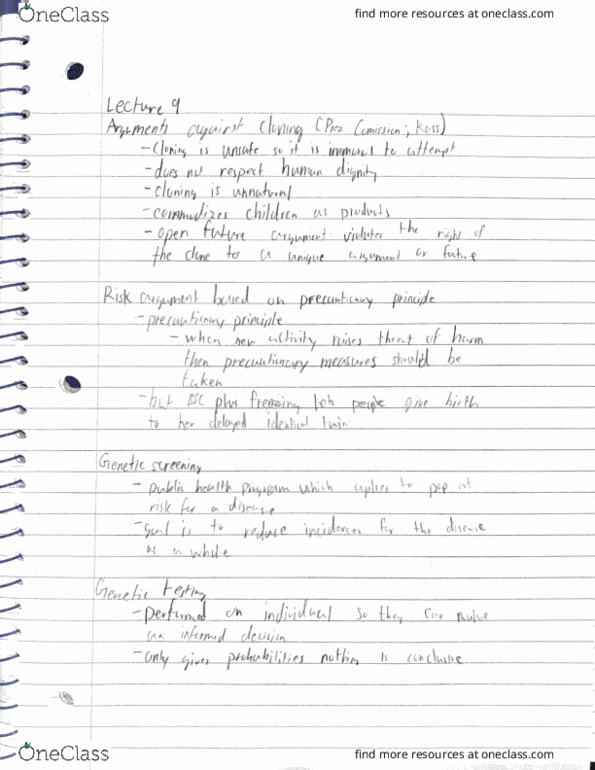 OneClass
find more resources at oneclass.com
Lecture 9
Arguments against cloning (Prez Comission; Kass)
- cloning is unsafe so it is immoral to attempt
- does not respect human dignity
- cloning is unnatural
- commodizes children as products
- open future argument: violates the right of
the clone to a unique argument or future
Risk argument based on precautionary principle
- precautionary principle
- when new activity raises threat of harm
then precautionary measures should be
taken
- but plus freezing lets people give birth
to her delayed identical twin
Genetic screening
- public health program which applies to pop at
risk for a disease
- goal is to reduce incidences for the disease
as a whole
Genetic testing
- performed on individual so they can make
an informed decision
- only gives probabilities nothing is conclusive
OneClass
find more resources at oneclass.com